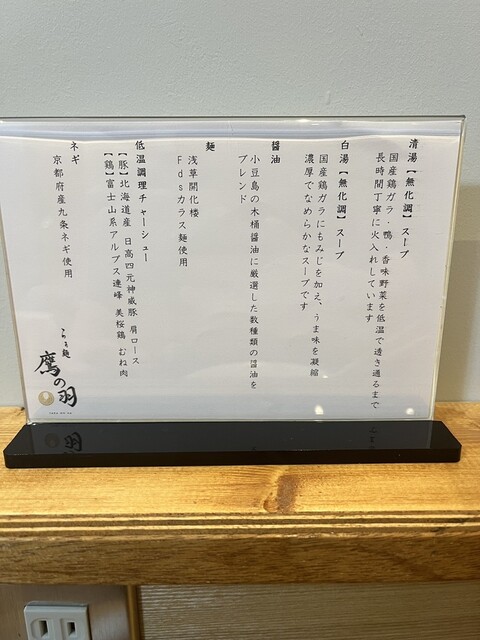 清湯【無化調】スープ
国産鶏ガラ・鴨・香味野菜を低温で透き通るまで
長時間丁寧に火入れしています
白湯【無化調】スープ
国産鶏ガラにもみじを加え、うま味を凝縮
濃厚でなめらかなスープです
醤油
小豆島の木桶醤油に厳選した数種類の醤油を
ブレンド
麺
浅草開化楼
Fdsカラス麺使用
低温調理チャーシュー
【豚】北海道産 日高四元神威豚 肩ロース
【鶏】富士山系アルプス連峰 美桜鶏 むね肉
ネギ
京都府産九条ネギ使用
らぁ麺
鷹の羽